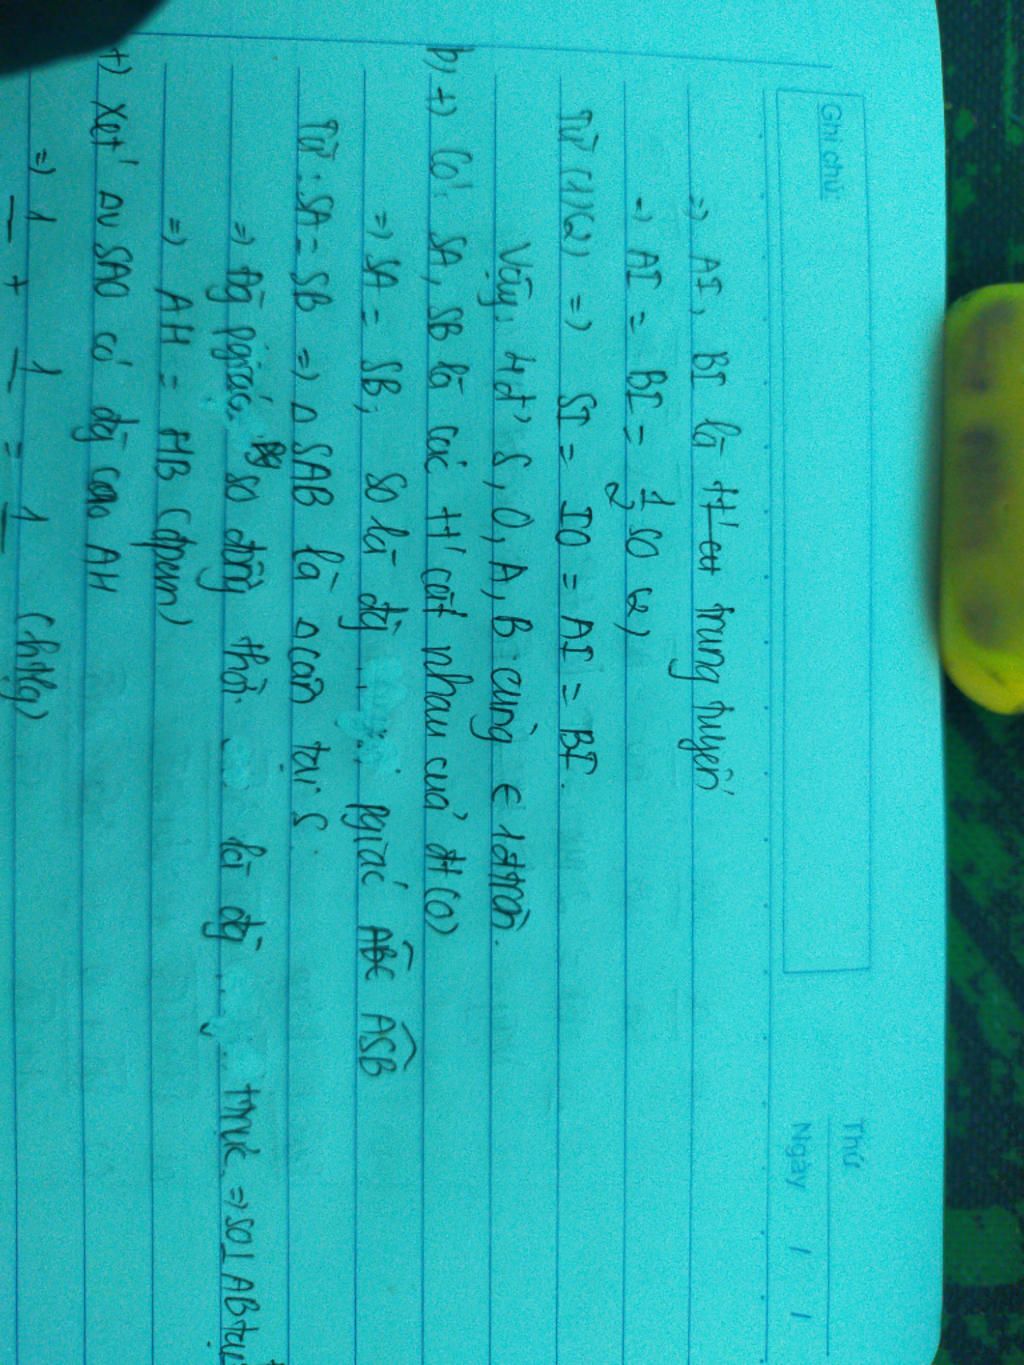 Ghi chú:
Thứ
Ngày / /
=> AI, BI là trung tuyến
=> AI = BI = 1/2 SO (2)
Từ (1)(2) => SI = IO = AI = BI.
Vậy, 4 đ' S, O, A, B cùng ∈ 1 đtròn.
b) +) Có: SA, SB là các tt' cắt nhau của đt (O)
=> SA = SB, SO là đg ... pgiác ABC ASB
Từ: SA = SB => Δ SAB là Δ cân tại S.
=> đg pgiác SO đồng thời là đg ... trực => SO ⊥ AB tại
=> AH = HB (đpcm)
+) Xét Δv SAO có đg cao AH
=> 1 + 1 = 1 (htlg)